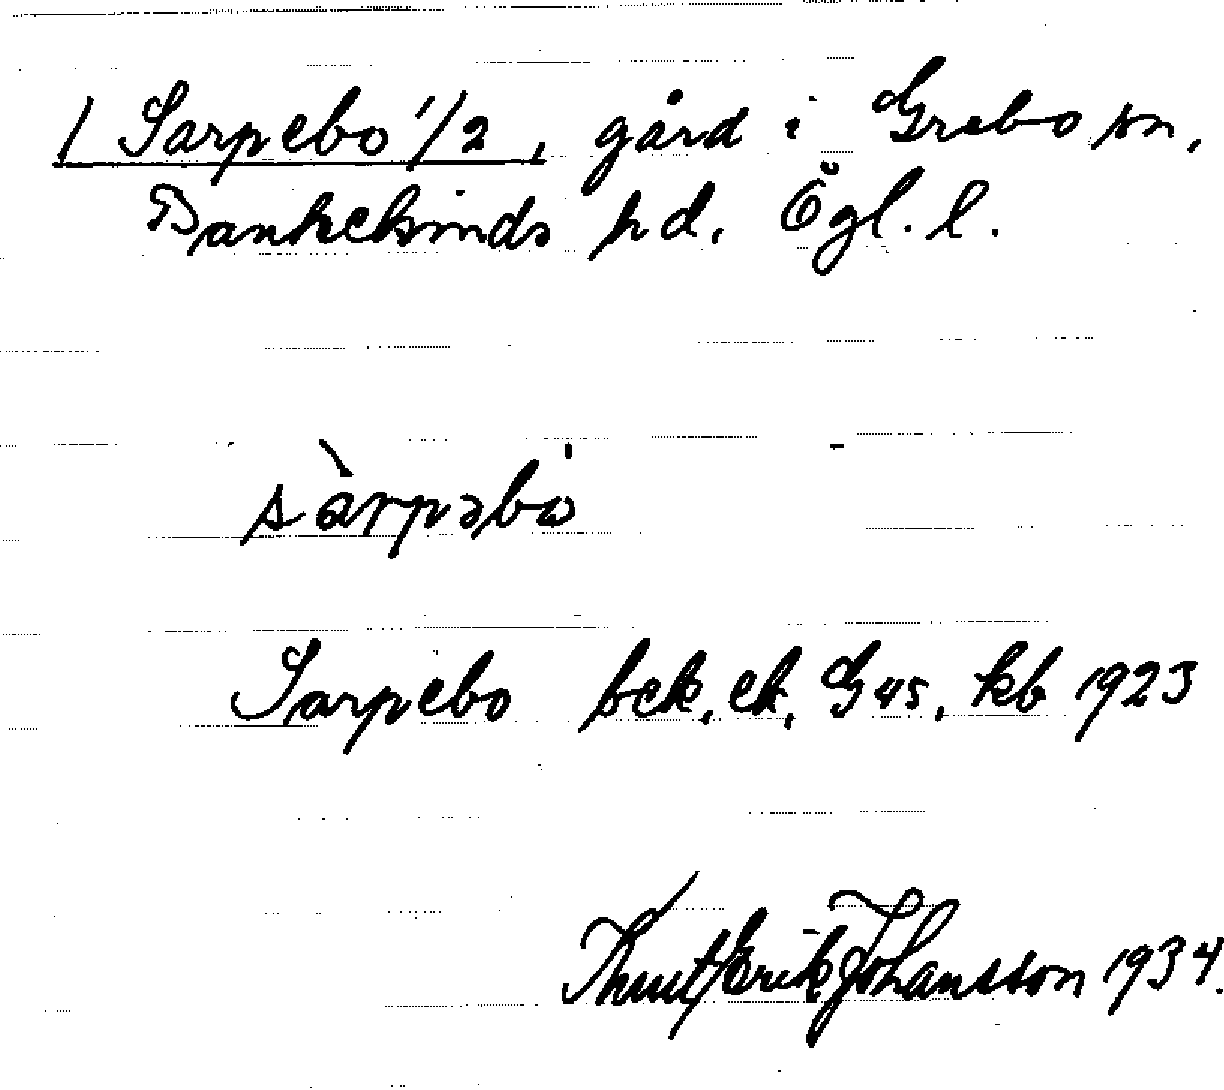 / Sarpebo 1/2, gård i Grebo sn,
Bankekinds hd. Ögl. l.
sàrpəbω̍
Sarpebo bek, ek, G4S, kb 1923
Knut Erik Johansson 1934.